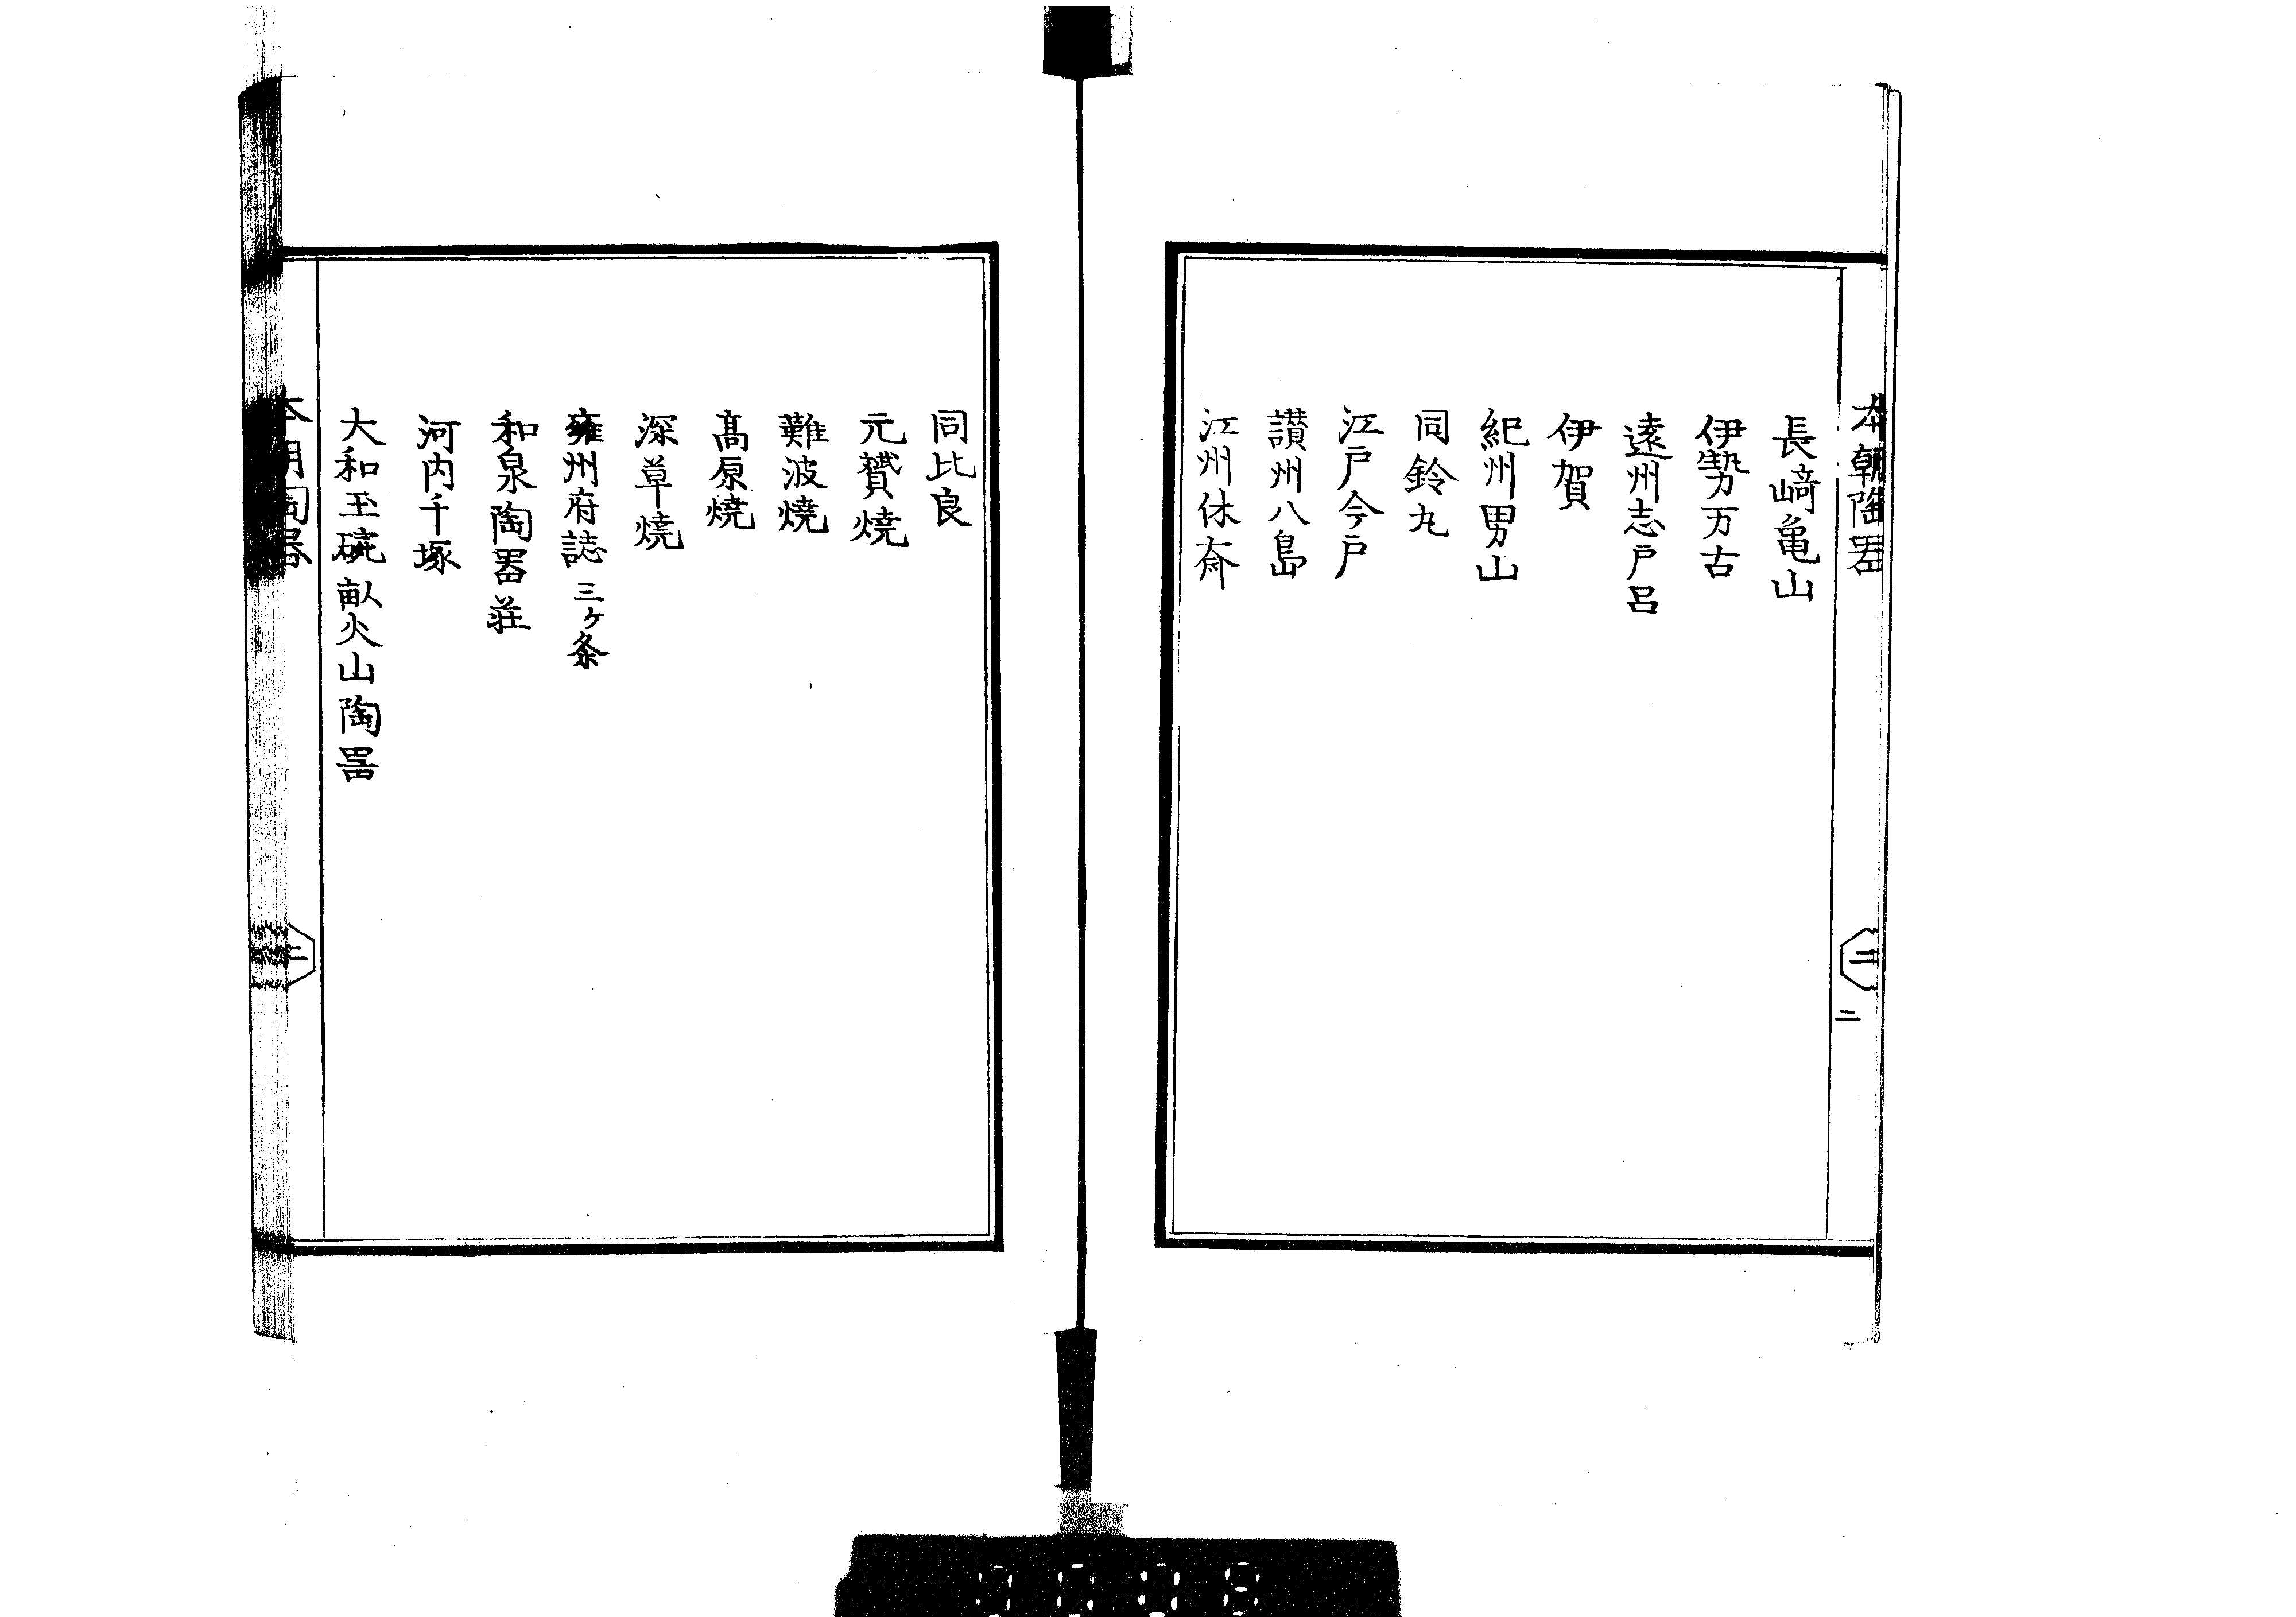 本朝陶器
二
二
長﨑亀山
伊勢万古
遠州志戸呂
伊賀
紀州男山
同鈴丸
江戸今戸
讃州八島
江州休斎
同比良
元贇焼
難波焼
髙原焼
深草焼
雍州府誌三ヶ条
和泉陶器荘
河内千塚
大和玉碗畝火山陶器
本朝陶器
二